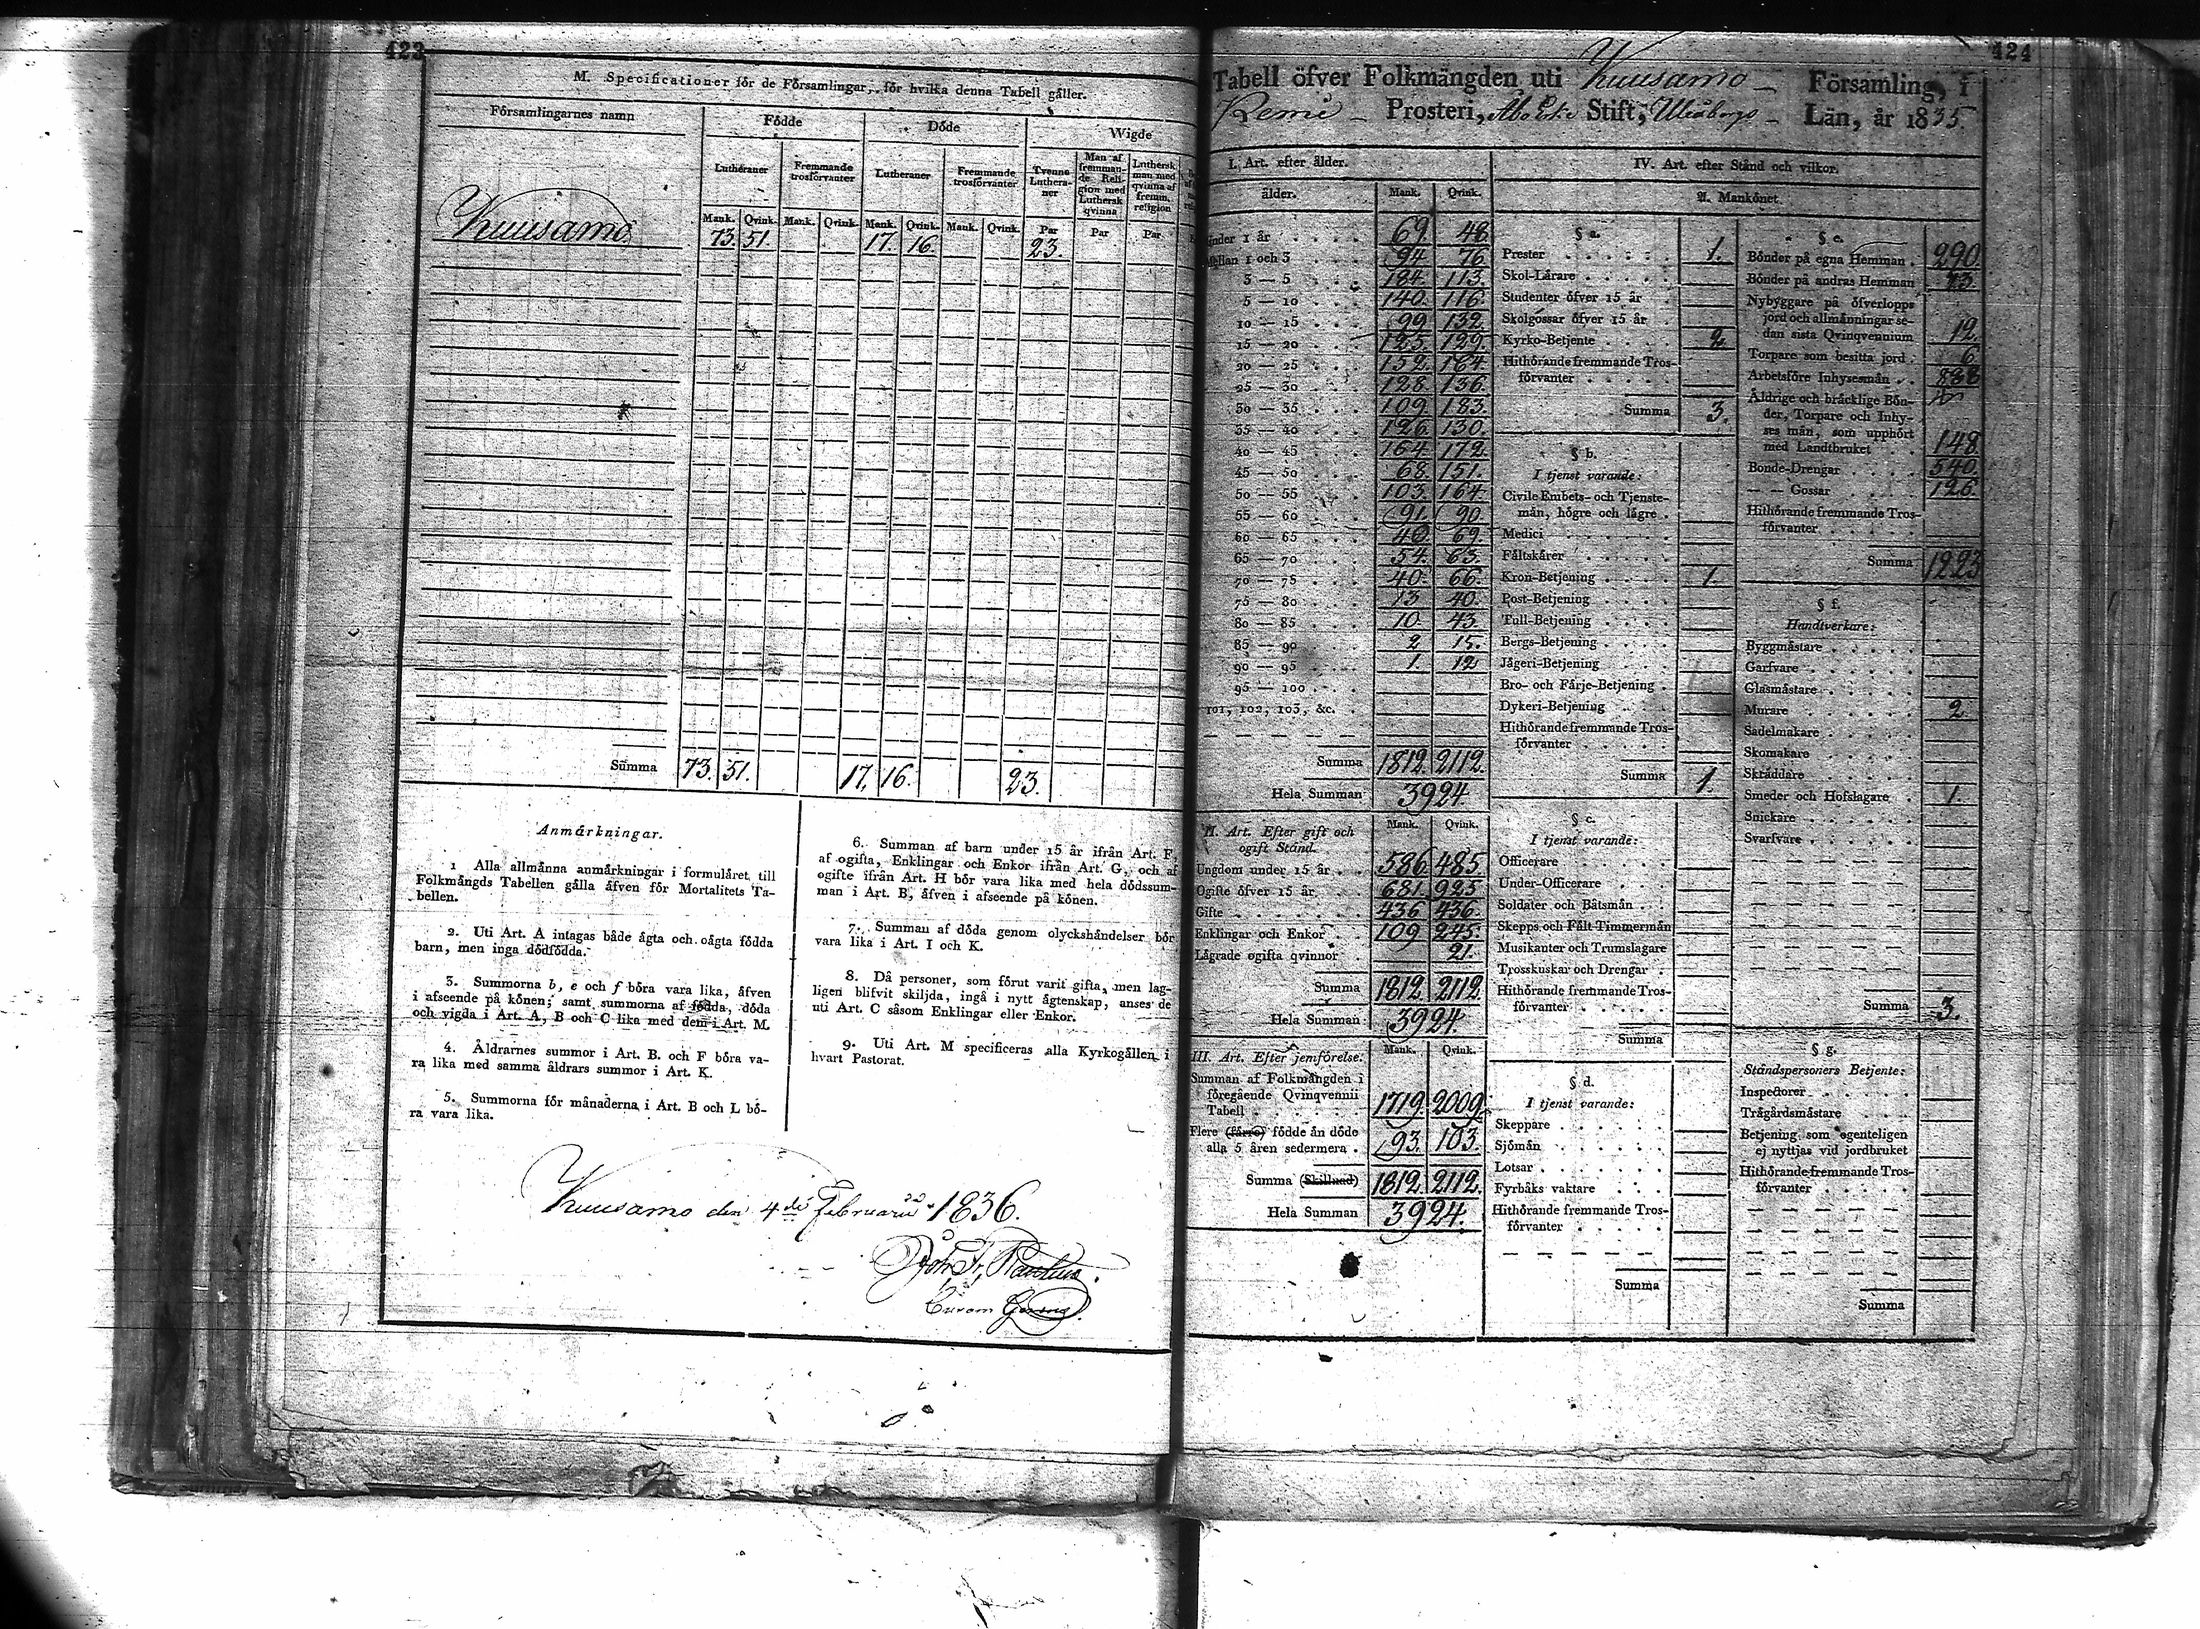 423
M. Specificationer för de Församlingar, för hvilka denna Tabell gäller.
Församlingarnes namn Födde Döde Wigde
Lutheraner Fremmande trosförvanter Lutheraner Fremmande trosförvanter Tvenne Lutheraner Man af fremmande Religion med Luthersk qvinna Luthersk man med qvinna af fremm. religion
Mank. Qvink. Mank. Qvink. Mank. Qvink. Mank. Qvink. Par Par Par
Kuusamo 73. 51. 17. 16. 23.
Summa 73. 51. 17. 16. 23.
Anmärkningar.
1 Alla allmänna anmärkningar i formuläret till
Folkmängds Tabellen gälla äfven för Mortalitets Ta-
bellen.
2. Uti Art. A intagas både ägta och oägta födda
barn, men inga dödfödda.
3. Summorna b, e och f böra vara lika, äfven
i afseende på könen; samt summorna af födda, döda
och vigda i Art. A, B och C lika med dem i Art. M.
4. Åldrarnes summor i Art. B. och F böra va-
ra lika med samma åldrars summor i Art. K.
5. Summorna för månaderna i Art. B och L bö-
ra vara lika.
6. Summan af barn under 15 år ifrån Art. F,
af ogifta, Enklingar och Enkor ifrån Art. G, och af
ogifte ifrån Art. H bör vara lika med hela dödssum-
man i Art. B, äfven i afseende på könen.
7. Summan af döda genom olyckshändelser bör
vara lika i Art. I och K.
8. Då personer, som förut varit gifta, men lag-
ligen blifvit skiljda, ingå i nytt ägtenskap, anses de
uti Art. C såsom Enklingar eller Enkor.
9. Uti Art. M specificeras alla Kyrkogällen i
hvart Pastorat.
Kuusamo den 4de Februarii 1836.
Joh. Fr.
424
Tabell öfver Folkmängden uti Kuusamo Församling, i
Kemi Prosteri, Åbo Erke Stift, Uleåborgs Län, år 1835.
I. Art. efter ålder.
ålder. Mank. Qvink.
Under 1 år 69. 48.
Mellan 1 och 3 94. 76.
3 — 5 184. 113.
5 — 10 140. 116.
10 — 15 99. 132.
15 — 20 125. 129.
20 — 25 152. 164.
25 — 30 128. 136.
30 — 35 109. 183.
35 — 40 126. 130.
40 — 45 164. 172.
45 — 50 68. 151.
50 — 55 103. 164.
55 — 60 91. 90.
60 — 65 40. 69.
65 — 70 54. 63.
70 — 75 40. 66.
75 — 80 13 40.
80 — 85 10. 43.
85 — 90 2 15.
90 — 95 1. 12
95 — 100
101, 102, 103, &c.
Summa 1812. 2112.
Hela Summan 3924.
II. Art. Efter gift och
ogift Stånd. Mank. Qvink.
Ungdom under 15 år 586. 485.
Ogifte öfver 15 år 681. 925.
Gifte 436 436.
Enklingar och Enkor 109 245.
Lägrade ogifta qvinnor 21.
Summa 1812. 2112.
Hela Summan 3924.
III. Art. Efter jemförelse. Mank. Qvink.
Summan af Folkmängden i
föregående Qvinqvennii
Tabell 1719. 2009.
Flere (färre) födde än döde
alla 5 åren sedermera 93. 103.
Summa (Skillnad) 1812. 2112.
Hela Summan 3924.
IV. Art. efter Stånd och vilkor.
A. Mankönet.
§ a.
Prester 1.
Skol-Lärare
Studenter öfver 15 år
Skolgossar öfver 15 år
Kyrko-Betjente 2
Hithörande fremmande Tros-
förvanter
Summa 3.
§ b.
I tjenst varande:
Civile Embets- och Tjenste-
män, högre och lägre
Medici
Fältskärer
Kron-Betjening 1.
Post-Betjening
Tull-Betjening
Bergs-Betjening
Jägeri-Betjening
Bro- och Färje-Betjening
Dykeri-Betjening
Hithörande fremmande Tros-
förvanter
Summa 1.
§ c.
I tjenst varande:
Officerare
Under-Officerare
Soldater och Båtsmän
Skepps och Fält Timmermän
Musikanter och Trumslagare
Trosskuskar och Drengar
Hithörande fremmande Tros-
förvanter
Summa
§ d.
I tjenst varande:
Skeppare
Sjömän
Lotsar
Fyrbåks vaktare
Hithörande fremmande Tros-
förvanter
Summa
§ e.
Bönder på egna Hemman 290.
Bönder på andras Hemman 73.
Nybyggare på öfverlopps
jord och allmänningar se-
dan sista Qvinqvennium 12.
Torpare som besitta jord 6.
Arbetsföre Inhysesmän
Äldrige och bräcklige Bön-
der, Torpare och Inhy-
ses män, som upphört
med Landtbruket 148.
Bonde-Drengar 540.
— — Gossar 126.
Hithörande fremmande Tros-
förvanter
Summa 1223
§ f.
Handtverkare:
Byggmästare
Garfvare
Glasmästare
Murare 2
Sadelmakare
Skomakare
Skräddare
Smeder och Hofslagare 1.
Snickare
Svarfvare
Summa 3.
§ g.
Ståndspersoners Betjente:
Inspectorer
Trägårdsmästare
Betjening som egenteligen
ej nyttjas vid jordbruket
Hithörande fremmande Tros-
förvanter
Summa